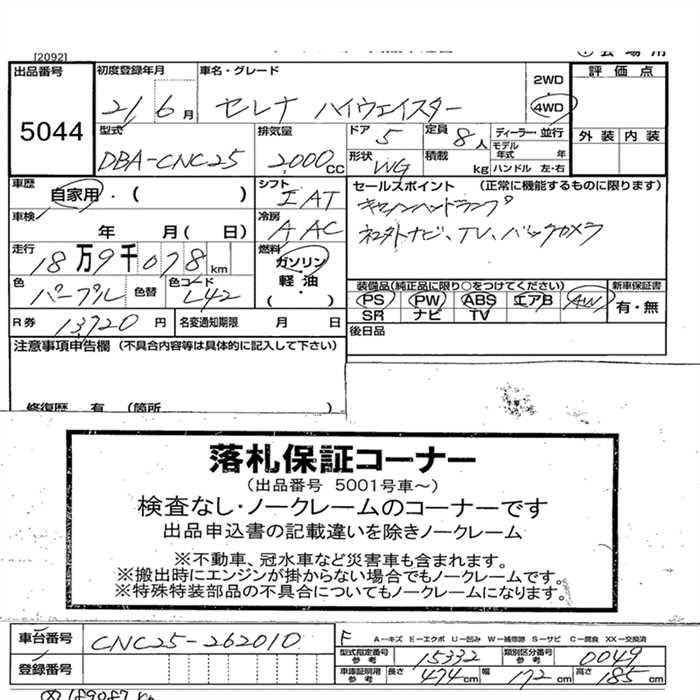 [2092]
出品番号 5044
初度登録年月 21 6 月
車名・グレード セレナ ハイウェイスター
2WD
4WD
評価点
外装 内装
型式 DBA-CNC25
排気量 2,000 CC
ドア 5
定員 8 人
形状 WG
積載 kg
ディーラー・並行
モデル年式 年
ハンドル 左・右
車歴 自家用・( )
シフト IAT
セールスポイント (正常に機能するものに限ります)
キセノンヘッドランプ
社外ナビ、TV、バックカメラ
車検 年 月(日)
冷房 AAC
走行 18万9千078 km
燃料 ガソリン・軽油・( )
色 パープル 色替
色コード L42
装備品(純正品に限り○をつけてください)
PS PW ABS エアB AW
SR ナビ TV
新車保証書 有・無
R券 13,720 円
名変通知期限 月 日
後日品
注意事項申告欄 (不具合内容等は具体的に記入して下さい)
修復歴 有 (箇所 )
落札保証コーナー
(出品番号 5001号車~)
検査なし・ノークレームのコーナーです
出品申込書の記載違いを除きノークレーム
※不動車、冠水車など災害車も含まれます。
※搬出時にエンジンが掛からない場合でもノークレームです。
※特殊特装部品の不具合についてもノークレームになります。
車台番号 CNC25-262010
F A―キズ E―エクボ U―凹み W―補修跡 S―サビ C―腐食 XX―交換済
型式指定番号 参考 15332
類別区分番号 参考 0049
登録番号
車庫証明用 参考 長さ 474cm 幅 172cm 高さ 185cm